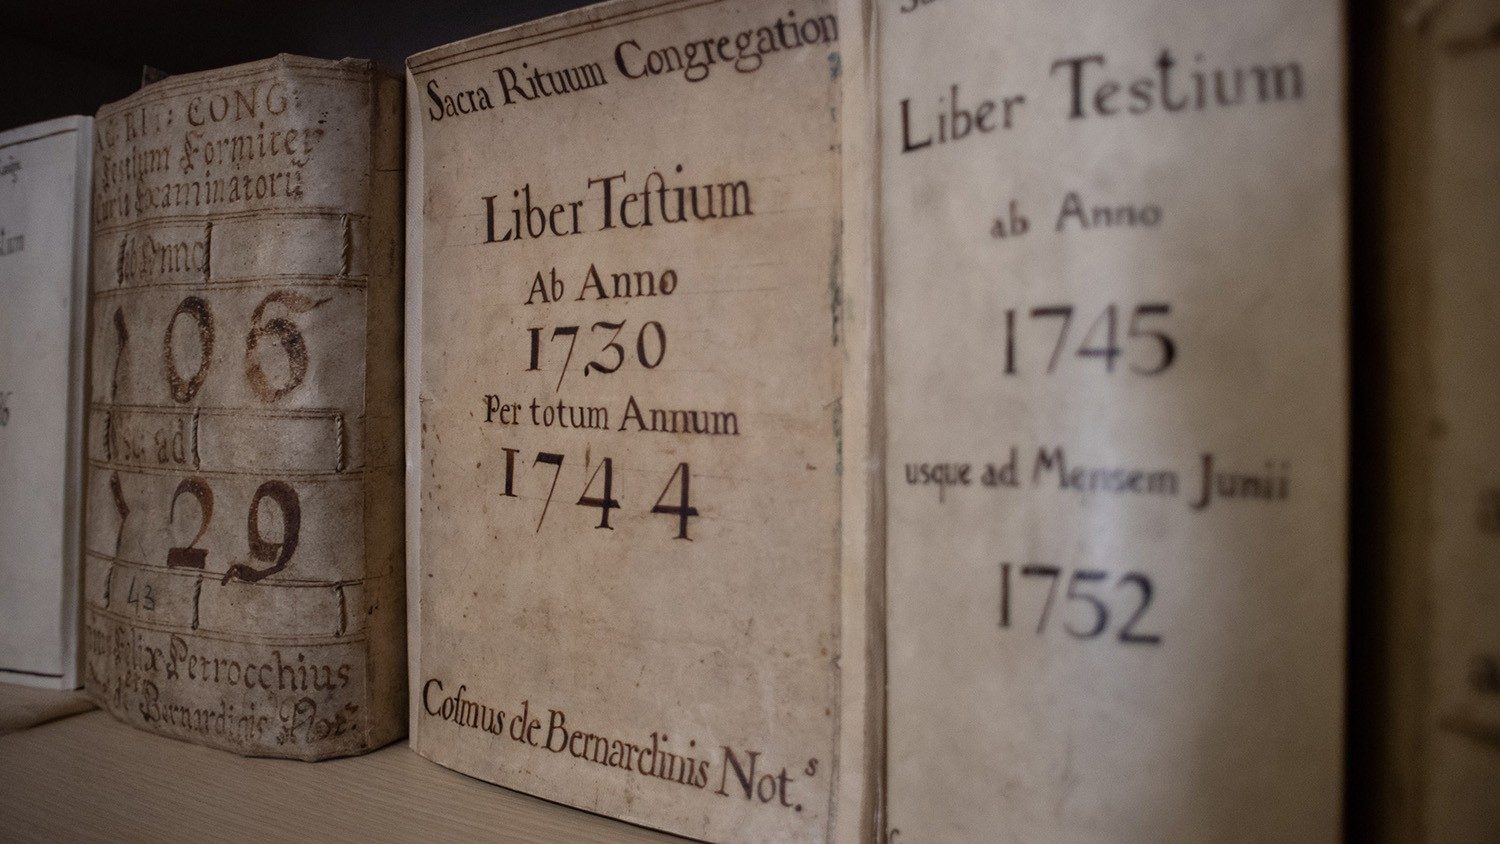 CONG
Testium
Examinatorū
ab Anno
706
ad
729
43
Felix Petrocchius
et Bernardinis Not.
Sacra Rituum Congregation
Liber Teſtium
Ab Anno
1730
Per totum Annum
1744
Coſmus de Bernardinis Not.s
Liber Testium
ab Anno
1745
usque ad Mensem Junii
1752